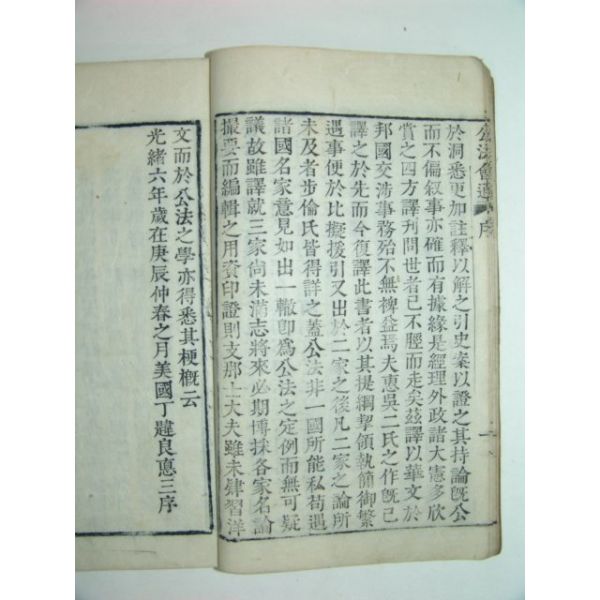 公法會通 序 一
於洞悉更加註釋以解之引史案以證之其持論旣公
而不偏叙事亦確而有據緣是經理外政諸大憲多欣
賞之四方譯刊問世者已不脛而走矣茲譯以華文於
邦國交涉事務殆不無裨益焉夫惠吳二氏之作旣已
譯之於先而今復譯此書者以其提綱挈領執簡御繁
遇事便於比擬援引又出於二家之後凡二家之論所
未及者步倫氏皆得詳之蓋公法非一國所能私苟遇
諸國名家意見如出一轍卽爲公法之定例而無可疑
議故雖譯就三家尙未滿志將來必期博採各家名論
撮要而編輯之用資印證則支那士大夫雖未肄習洋
文而於公法之學亦得悉其梗槪云
光緒六年歲在庚辰仲春之月美國丁韙良悳三序